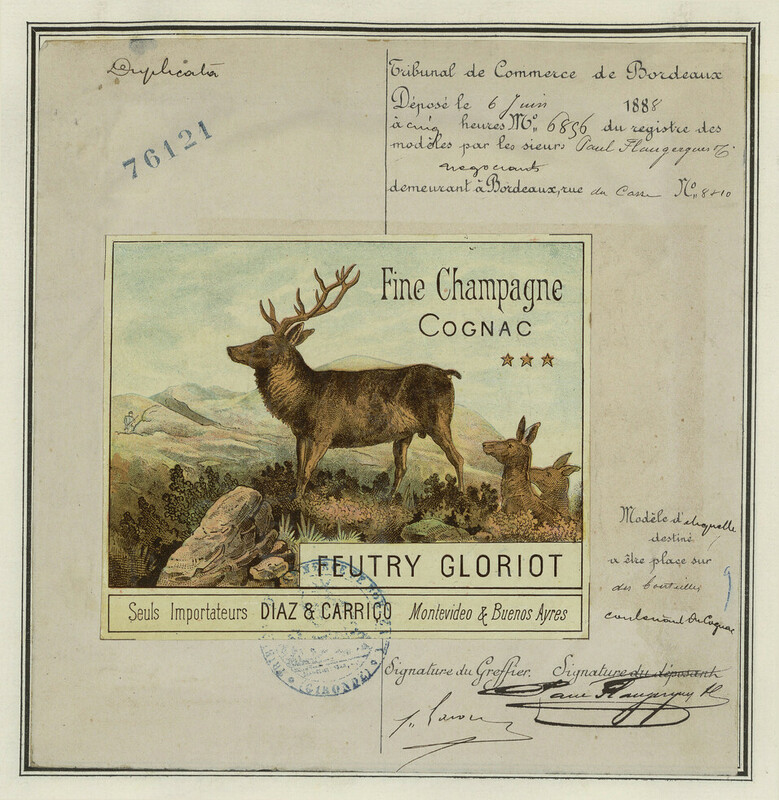 Duplicata
76121
Tribunal de Commerce de Bordeaux
Déposé le 6 Juin 1888
à cinq heures No. 6856 du registre des
modèles par les sieurs Paul Flaugergues
negociants
demeurant à Bordeaux, rue du No. 8 10
Fine Champagne
COGNAC
FEUTRY GLORIOT
Seuls Importateurs DIAZ & CARRIGO Montevideo & Buenos Ayres
Modèle d'étiquette
destiné
a être placé sur
des bouteilles
contenant du Cognac
Signature du Greffier. Signature du déposant
Paul Flaugergues
(GIRONDE)